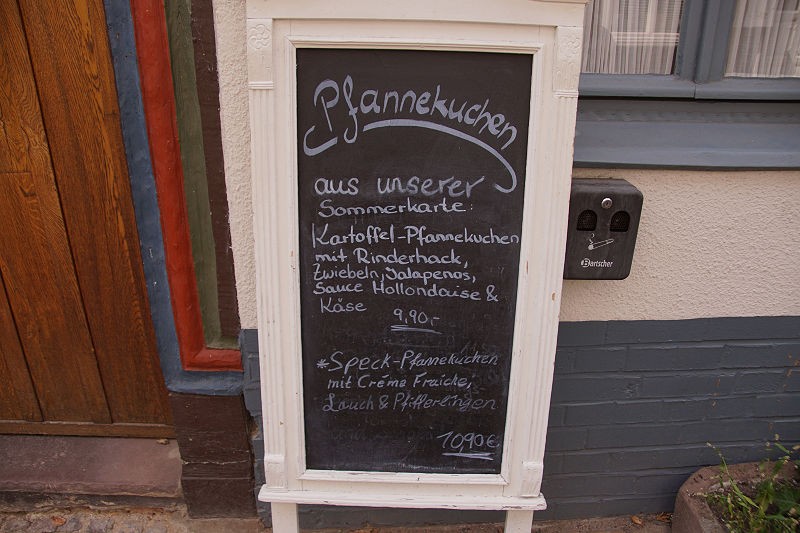 Pfannekuchen
aus unserer
Sommerkarte:
Kartoffel-Pfannekuchen
mit Rinderhack,
Zwiebeln, Jalapenos,
Sauce Hollondaise &
Käse
9,90,-
*Speck-Pfannekuchen
mit Créme Fraiche,
Lauch & Pfifferlingen
10,90€
Bartscher